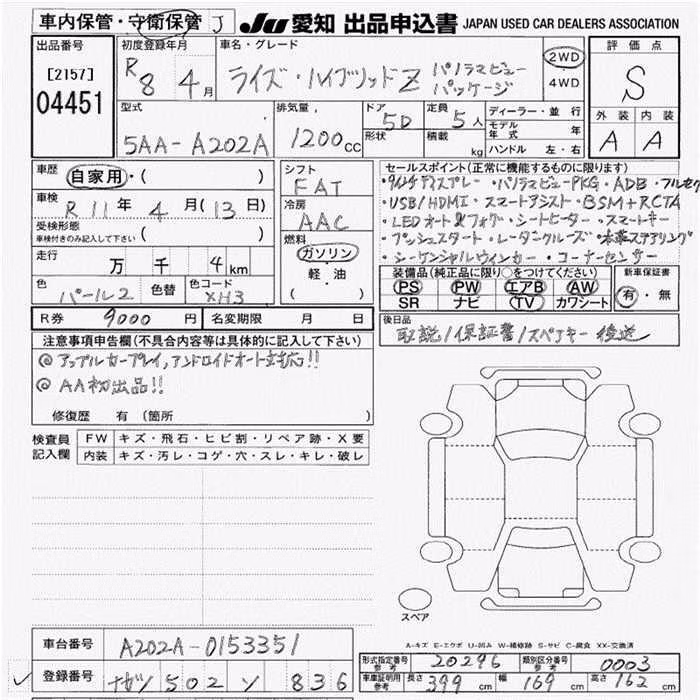 車内保管・守衛保管 J JU 愛知 出品申込書 JAPAN USED CAR DEALERS ASSOCIATION
出品番号 初度登録年月 車名・グレード 評価点
[2157] R8 4月 ライズ・ハイブリッドZ パノラマビューパッケージ 2WD 4WD S
04451
型式 排気量 ドア 定員 ディーラー・並行 外装 内装
5AA-A202A 1200cc 5D 5人 モデル年式 年 A A
形状 積載 kg ハンドル 左・右
車歴 自家用・( ) シフト セールスポイント(正常に機能するものに限ります)
FAT ・9インチディスプレー・パノラマビューPKG・ADB・フルセグ
車検 R11年4月(13日) 冷房 ・USB/HDMI・スマートアシスト・BSM+RCTA
受検形態 ( ) AAC ・LEDオート&フォグ・シートヒーター・スマートキー
車検付きのみ記入して下さい 燃料 ・プッシュスタート・レーダークルーズ・本革ステアリング
走行 万 千 4km ガソリン ・シーケンシャルウィンカー・コーナーセンサー
軽・油 装備品(純正品に限り○をつけてください) 新車保証書
色 パール2 色替 色コード XH3 ( ) PS PW エアB AW 有・無
SR ナビ TV カワシート
R券 9000円 名変期限 月 日 後日品
取説/保証書/スペアキー後送
注意事項申告欄(不具合内容等は具体的に記入して下さい)
◎アップルカープレイ,アンドロイドオート対応!!
◎AA初出品!!
修復歴 有(箇所 )
検査員 FW キズ・飛石・ヒビ割・リペア跡・X要
記入欄 内装 キズ・汚レ・コゲ・穴・スレ・キレ・破レ
スペア
A-キズ E-エクボ U-凹み W-補修跡 S-サビ C-腐食 XX-交換済
車台番号 A202A-0153351 形式指定番号 参考 20296 類別区分番号 参考 0003
登録番号 502 ソ 836 車庫証明用 参考 長さ 399cm 幅 169cm 高さ 162cm